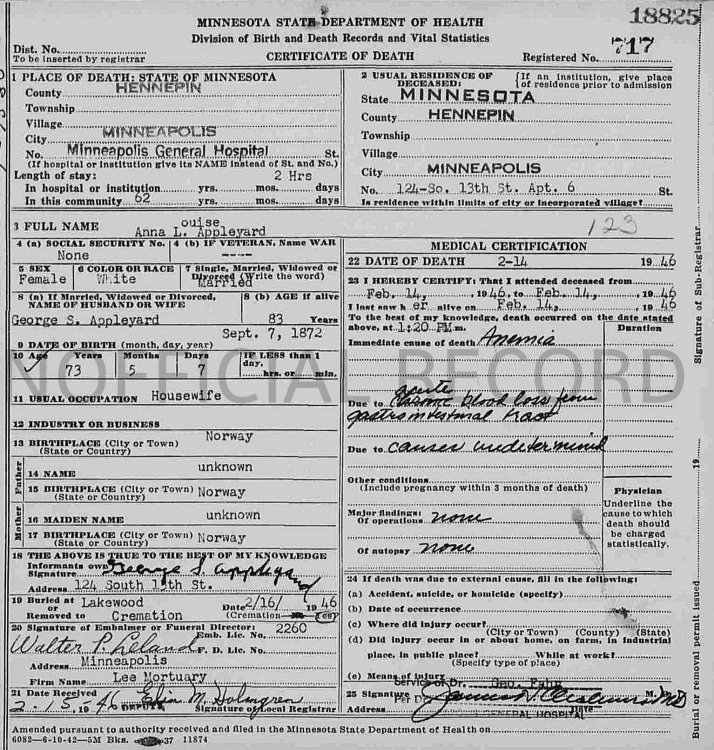 18825
MINNESOTA STATE DEPARTMENT OF HEALTH
Division of Birth and Death Records and Vital Statistics
Dist. No.
To be inserted by registrar
CERTIFICATE OF DEATH
Registered No. 717
1 PLACE OF DEATH: STATE OF MINNESOTA
County HENNEPIN
Township
Village
City MINNEAPOLIS
No. Minneapolis General Hospital St.
(If hospital or institution give its NAME instead of St. and No.)
Length of stay: 2 Hrs
In hospital or institution yrs. mos. days
In this community 62 yrs. mos. days
2 USUAL RESIDENCE OF DECEASED: (If an institution, give place of residence prior to admission
State MINNESOTA
County HENNEPIN
Township
Village
City MINNEAPOLIS
No. 124-So. 13th St. Apt. 6 St.
Is residence within limits of city or incorporated village?
123
3 FULL NAME Anna L. Appleyard
ouise
4 (a) SOCIAL SECURITY No. 4 (b) IF VETERAN, Name WAR
None ----
5 SEX 6 COLOR OR RACE 7 Single, Married, Widowed or Divorced (Write the word)
Female White Married
8 (a) If Married, Widowed or Divorced, NAME OF HUSBAND OR WIFE 8 (b) AGE if alive
George S. Appleyard 83 Years
9 DATE OF BIRTH (month, day, year) Sept. 7, 1872
10 Age Years Months Days IF LESS than 1 day,
73 5 7 hrs. or min.
11 USUAL OCCUPATION Housewife
12 INDUSTRY OR BUSINESS
13 BIRTHPLACE (City or Town) Norway
(State or Country)
Father
14 NAME unknown
15 BIRTHPLACE (City or Town) Norway
(State or Country)
Mother
16 MAIDEN NAME unknown
17 BIRTHPLACE (City or Town) Norway
(State or Country)
18 THE ABOVE IS TRUE TO THE BEST OF MY KNOWLEDGE
Informants own Signature George S. Appleyard
Address 124 South 13th St.
19 Buried at Lakewood Date 2/16/ 1946
or Removed to Cremation (Cremation yes)
20 Signature of Embalmer or Funeral Director: 2260
Emb. Lic. No.
Walter P. Leland F. D. Lic. No.
Address Minneapolis
Firm Name Lee Mortuary
21 Date Received
2-15-1946 DEPUTY
Signature of Local Registrar
MEDICAL CERTIFICATION
22 DATE OF DEATH 2-14 1946
23 I HEREBY CERTIFY: That I attended deceased from
Feb. 14, 1946, to Feb. 14, 1946
I last saw h er alive on Feb. 14, 1946
To the best of my knowledge, death occurred on the date stated above, at 1:20 P.M. m.
Duration
Immediate cause of death Anemia
Due to acute blood loss from
gastrointestinal tract
Due to causes undetermined
Other conditions
(Include pregnancy within 3 months of death)
Major findings:
Of operations none
Of autopsy none
Physician
Underline the cause to which death should be charged statistically.
24 If death was due to external cause, fill in the following:
(a) Accident, suicide, or homicide (specify)
(b) Date of occurrence
(c) Where did injury occur?
(City or Town) (County) (State)
(d) Did injury occur in or about home, on farm, in industrial
place, in public place? While at work?
(Specify type of place)
(e) Means of injury
Service of Dr. Geo. Fahr
25 Signature M. D.
Per Dr.
Address GENERAL HOSPITAL Date
Amended pursuant to authority received and filed in the Minnesota State Department of Health on
6082-6-10-42-5M Bks. 37 11874
Signature of Sub-Registrar
19
Burial or removal permit issued
NOFFICIAL RECORD